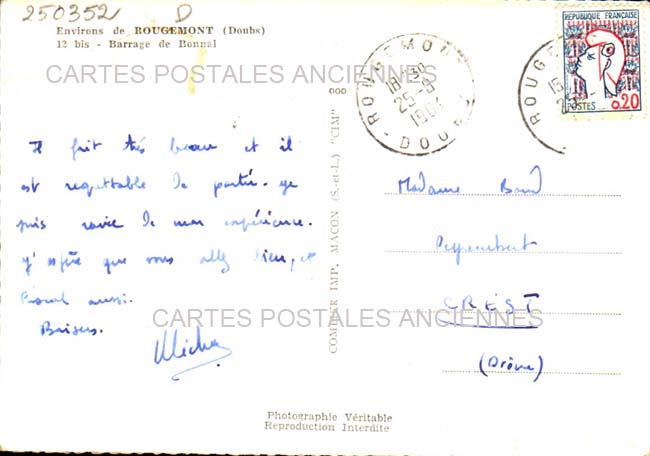 250352 D
Environs de ROUGEMONT (Doubs)
12 bis - Barrage de Bonnal
CARTES POSTALES ANCIENNES
ROUGEMONT
18H30
25-5
DOUBS
ROUGEMONT
REPUBLIQUE FRANCAISE
POSTES 0,20
Il fait très beau et il
est regrettable de partir. Je
suis ravie de mon expérience.
J'espère que vous allez bien, et
aussi.
Baisers.
COMBIER IMP. MACON (S.-et-L.) "CIM"
Madame
CREST
(Drôme)
CARTES POSTALES ANCIENNES
Photographie Véritable
Reproduction Interdite